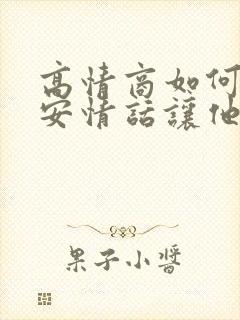 高情商如何
安情話讓他
果子小醬